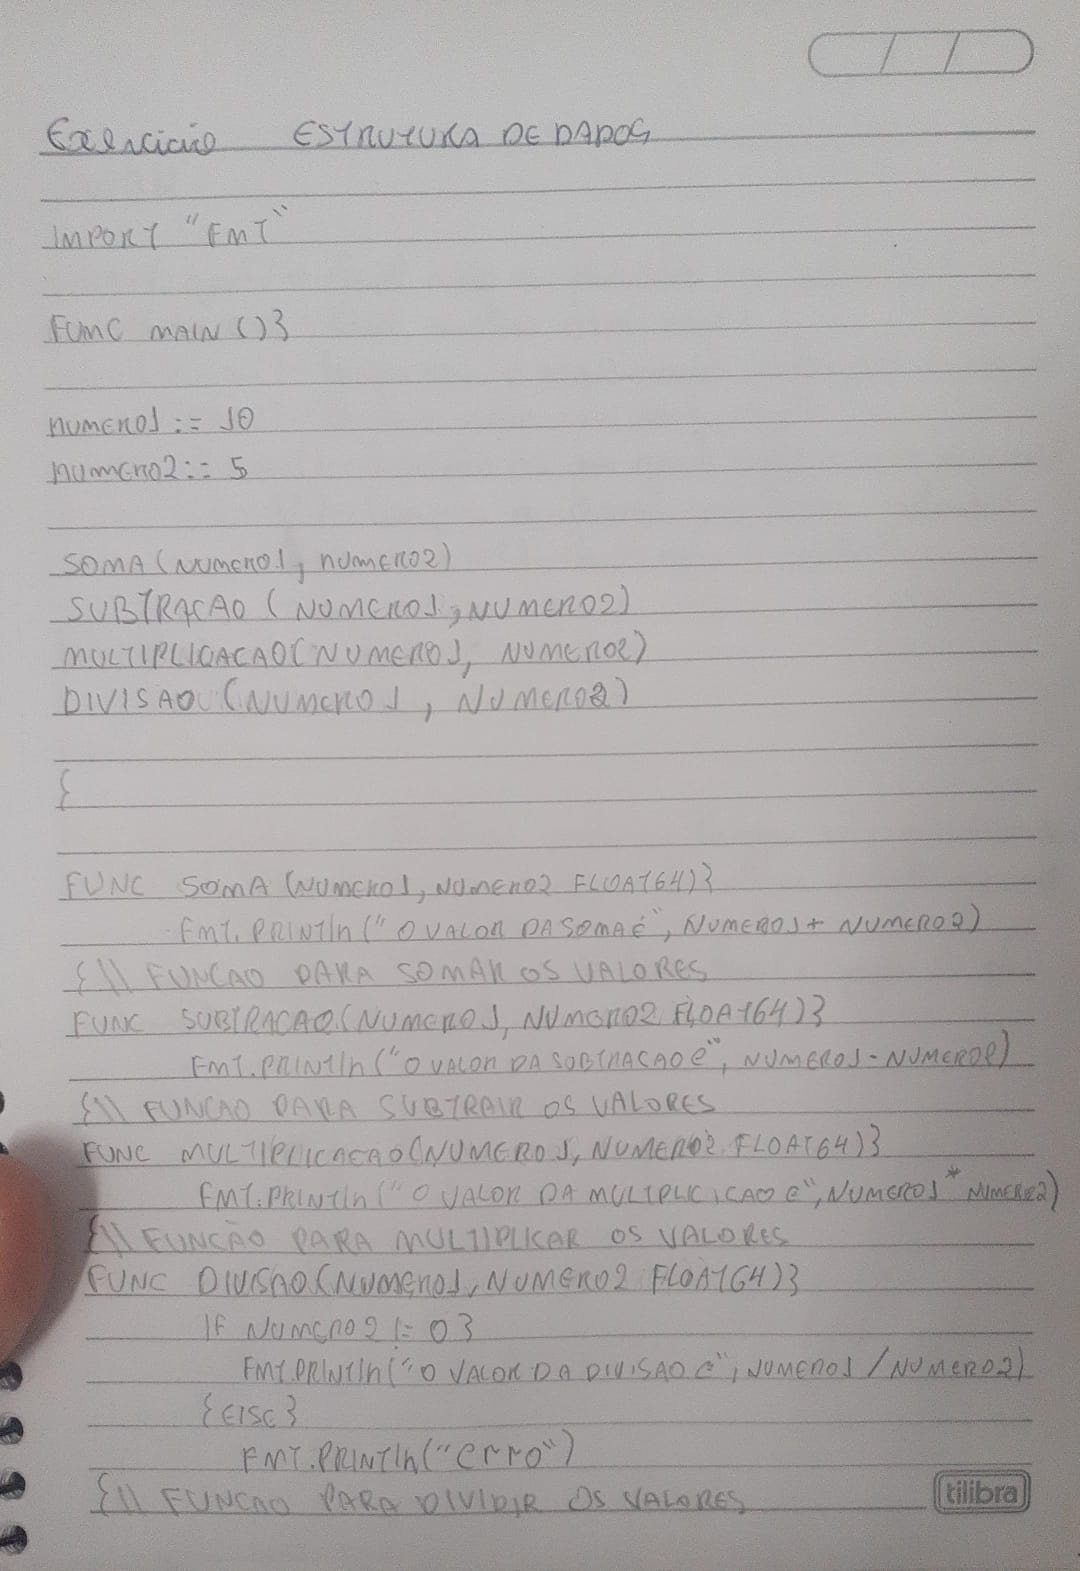 Exercício ESTRUTURA DE DADOS
IMPORT "FMT"
FUNC MAIN ()}
numero1 := 10
numero2 := 5
SOMA (NUMERO1, NUMERO2)
SUBTRACAO (NUMERO1, NUMERO2)
MULTIPLICACAO(NUMERO1, NUMERO2)
DIVISAO (NUMERO1, NUMERO2)
{
FUNC SOMA (NUMERO1, NUMERO2 FLOAT64)}
FMT.PRINTln ("O VALOR DA SOMA É", NUMERO1 + NUMERO2)
{\\ FUNCAO PARA SOMAR OS VALORES
FUNC SUBTRACAO (NUMERO1, NUMERO2 FLOAT64)}
FMT.PRINTln ("O VALOR DA SUBTRACAO é", NUMERO1 - NUMERO2)
{\\ FUNCAO PARA SUBTRAIR OS VALORES
FUNC MULTIPLICACAO(NUMERO1, NUMERO2 FLOAT64)}
FMT.PRINTln ("O VALOR DA MULTPLICICAO e", NUMERO1 * NUMERO2)
{\\ FUNCÃO PARA MULTIPLICAR OS VALORES
FUNC DIVISAO (NUMERO1, NUMERO2 FLOAT64)}
If NUMERO2 != 0 }
FMT.PRINTln("O VALOR DA DIVISAO e", NUMERO1 / NUMERO2)
{else}
FMT.PRINTln("erro")
{\\ FUNCAO PARA DIVIDIR OS VALORES
tilibra